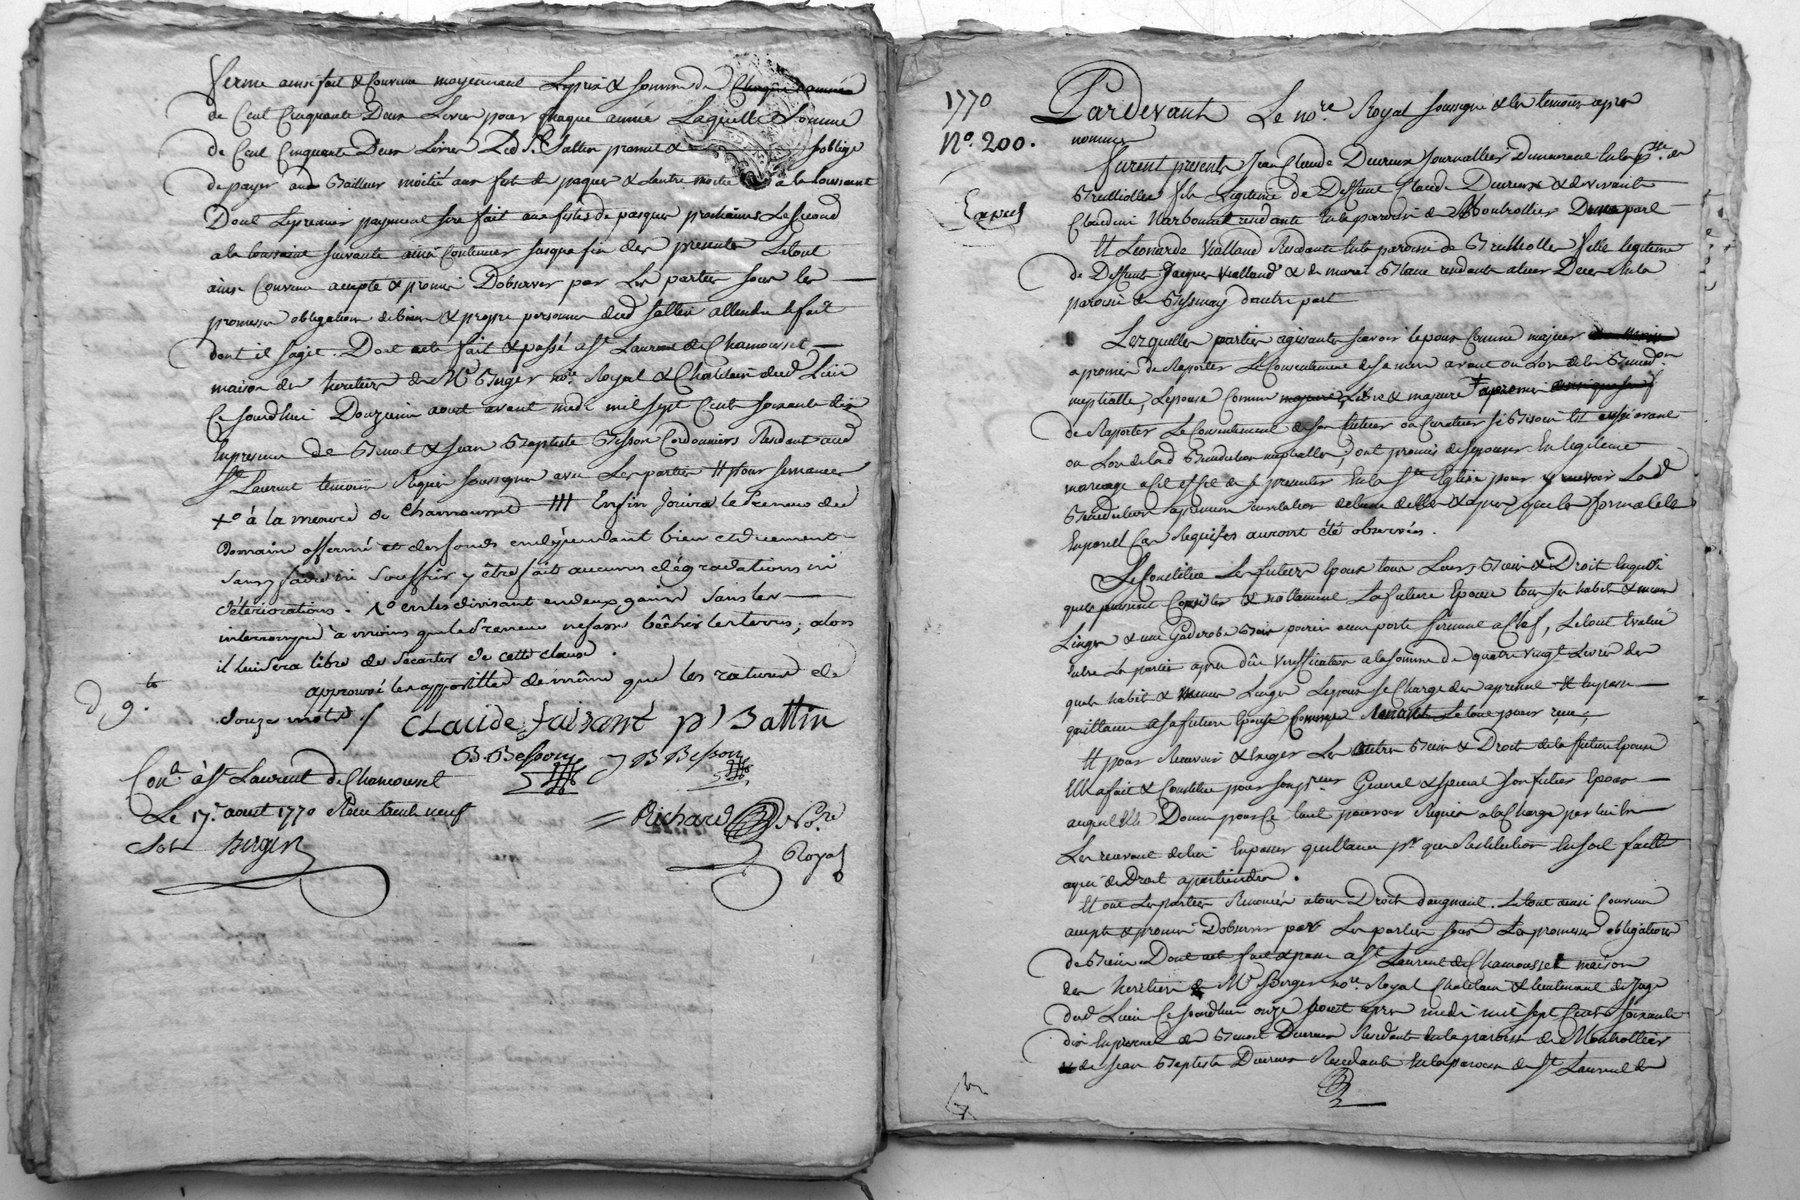 ferme ainsi fait & Convenu moyennant Le prix & somme de
de Cent Cinquante Deux Livres pour chaque année Laquelle somme
de Cent Cinquante Deux Livres Led Sr. Battin promet & soblige
de payer aud Bailleur moitié aux fete de paques & Lautre moitié a la toussaint
Dont Le premier payement sera fait aux festes de pasques prochaines Le second
a la toussaint suivante ainsi Continuer jusque fin des presente Le tout
ainsi Convenu accepté & promis Dobserver par Les parties sous les
promesses obligation de biens & propre personne dud Battin attendu le fait
dont il sagit. Dont acte fait & passé a St. Laurent de Chamousset
maison des heritiers de Me Berger nore. Royal & Chatelain dud Lieu
Ce jourdhui Douzieme aout avant midi mil sept Cent soixante dix
En presence de Benoit & Jean Baptiste Besson Cordonniers Residant aud
St Laurent temoins Requis soussignes avec Les parties // pour semances
+o à la mesure de Chamousset /// Enfin jouira le Preneur du
Domaine affermé et des fonds en dépendant bien et duement
sans faire ni souffrir y être fait aucunes dégradations ni
détériorations. 1o en les divisant en deux gains sans les
interrompre à moins que le Preneur ne fasse bêcher les terres; alors
il lui sera libre de s'écarter de cette clause.
approuvé les apposttilles de même que les ratures de
douze mots. /
CLAUDE faisant p' Battin
B Besson J B Besson
Con.. à St. Laurent de Chamousset
Le 17. aout 1770 Reçu trente neuf
Sols Berger
Richard No.re
Royal
1770
No. 200.
Exped
Pardevant Le no.re Royal soussigné & les temoins apres
nommes
furent presents Jean Claude Ducreux Journallier Demeurant en la psse. de
Brullioles fils Legitime de Deffunt Claude Ducreux & de vivante
Claudine Narbonnet residante en la paroisse de Montrottier Dune part
Et Leonarde Vialland Residante en la paroisse de Brullioles fille legitime
de Deffunt Jacques Vialland & de
paroisse de Bessenay dautre part
Lezquelles parties agissantes scavoir lepoux Comme majeur
a promis de Rapporter Le Consentement de sa mere avant ou Lors de la Benedon
nuptialle, Lepouse Comme Libre & majeure + a promis
de Rapporter Le Consentement de son tuteur ou Curateur si Besoin Est aussi avant
ou Lors de lad Benediction nuptialle, ont promis de sepouser En legitime
mariage a cet effet de se presenter En la Ste Eglise pour y recevoir Lad
Benediction a la premiere invitation de lune delles & apres que les formalités
En pareil Cas Requises auront été observées.
Se Constitue Les futurs Epoux tous Leurs Biens & Droits En quoi
quils puissent Consister & nottament La future Epouse tous ses habits & menus
Linges & une Garderobe Bois poirier a une porte fermant a Clef, Le tout Evalué
entre Les parties apres dûe veriffication a la somme de quatre vingt Livres des
quels habits & menus Linges Lepoux se Charge des apresent & En passe
quittance a sa future Epouse Comme Le tout pour reçu.
Et pour Recevoir & Exiger Les autres Biens & Droits de la future Epouse
Elle a fait & Constitué pour son preur General & special son futur Epoux
auquel Elle Donne pour Ce tout pouvoir Requis a la Charge par lui En
Les recevant de lui En passer quittance pr. que Restitution En soit faitte
a qui de Droit apartiendra.
Et ont Les parties Renoncés a tous Droits daugment. Le tout ainsi Convenu
accepté & promis Dobserver par Les parties sous Les promesses obligations
de Biens Dont acte fait & passé a St. Laurent de Chamousset maison
des heritiers de Me Berger nore. Royal Chatelain & lieutenant de Juge
dud Lieu Ce jourdhui onze aout apres midi mil sept Cent soixante
dix En presence de Benoit Ducreux Residant en la paroisse de Montrottier
& de Jean Baptiste Ducreux Residant En la paroisse de St. Laurent de